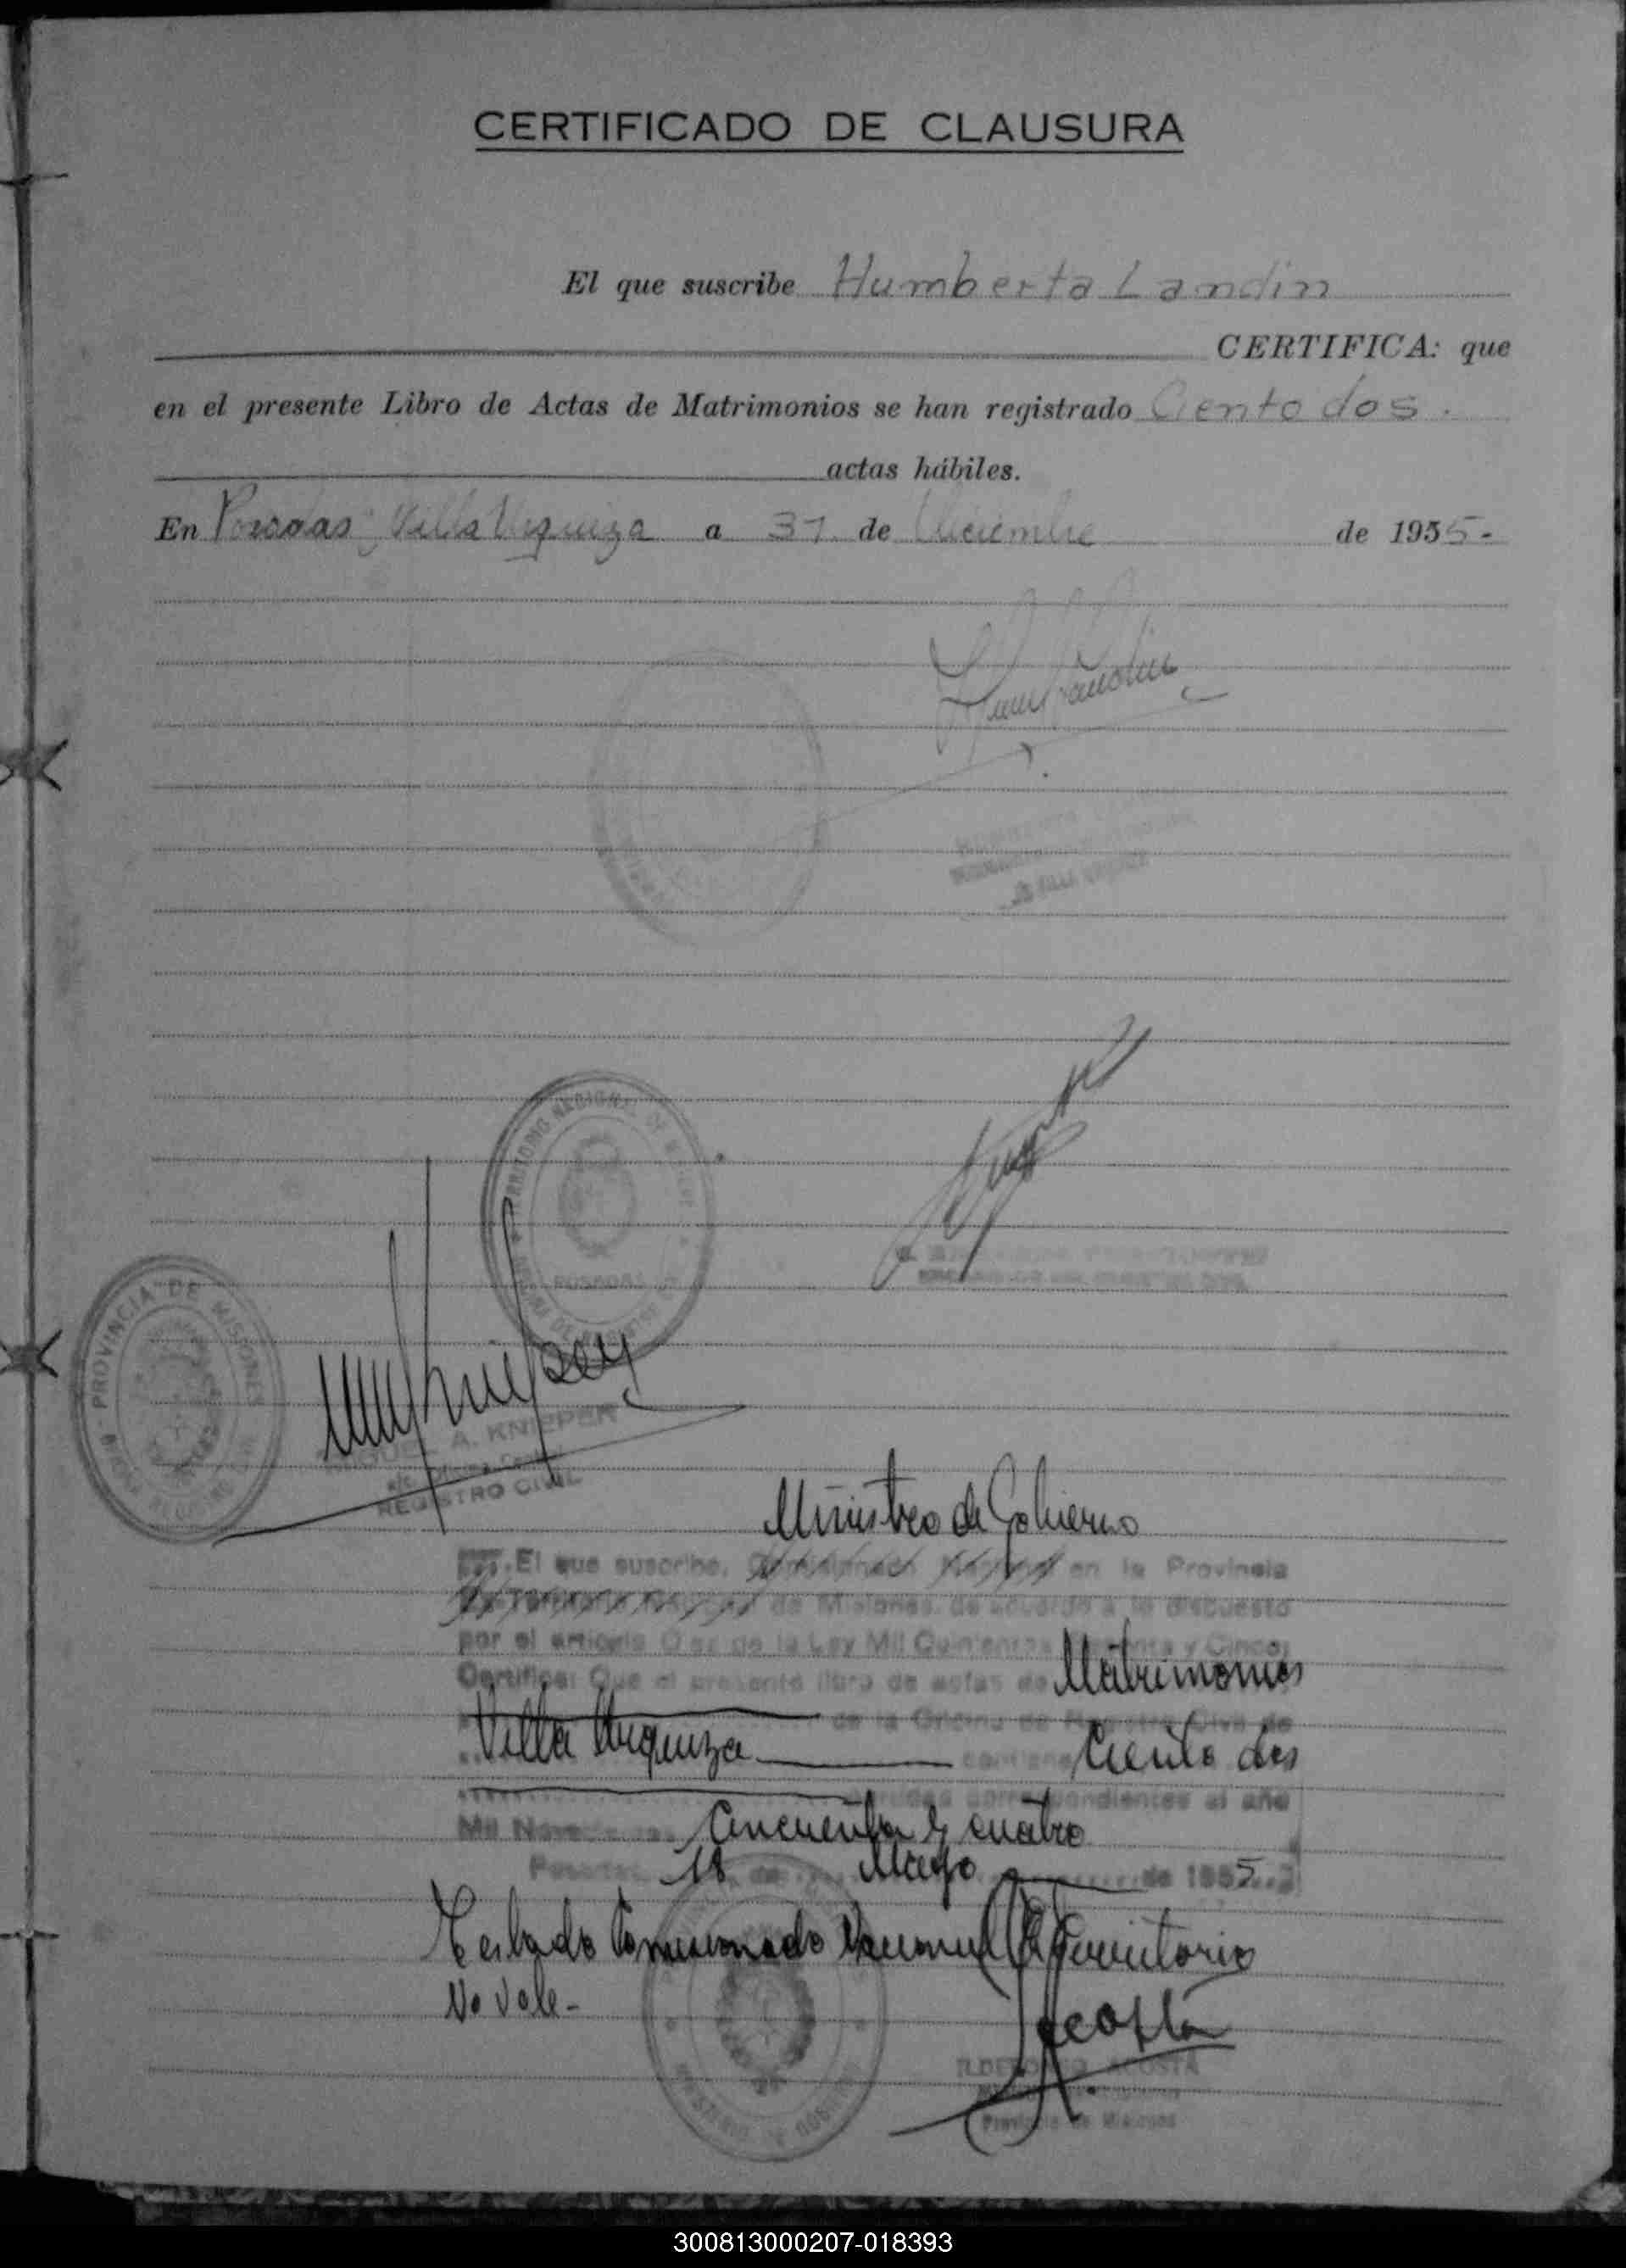 CERTIFICADO DE CLAUSURA
El que suscribe Humberta Landin
CERTIFICA: que
en el presente Libro de Actas de Matrimonios se han registrado Ciento dos.
actas hábiles.
En Posadas, Villa Urquiza a 31 de Diciembre de 1955-
TERRITORIO NACIONAL DE
POSADAS
PROVINCIA DE MISIONES
A. KNIEPPER
REGISTRO CIVIL
Ministro de Gobierno
El que suscribe, Comisionado Nacional en la Provincia
de Misiones, de acuerdo a lo dispuesto
por el artículo Diez de la Ley Mil Quinientos y Cinco,
Certifica: Que el presente libro de actas de Matrimonios
de la Oficina de Registro Civil de
Villa Urquiza contiene Ciento dos
correspondientes al año
Mil Novecientos Cincuenta y cuatro
Posadas, 18 de Mayo de 1955
Testado Comisionado Nacional Territorio
No vale-
Acosta
ILDEFONSO ACOSTA
Provincia de Misiones
300813000207-018393